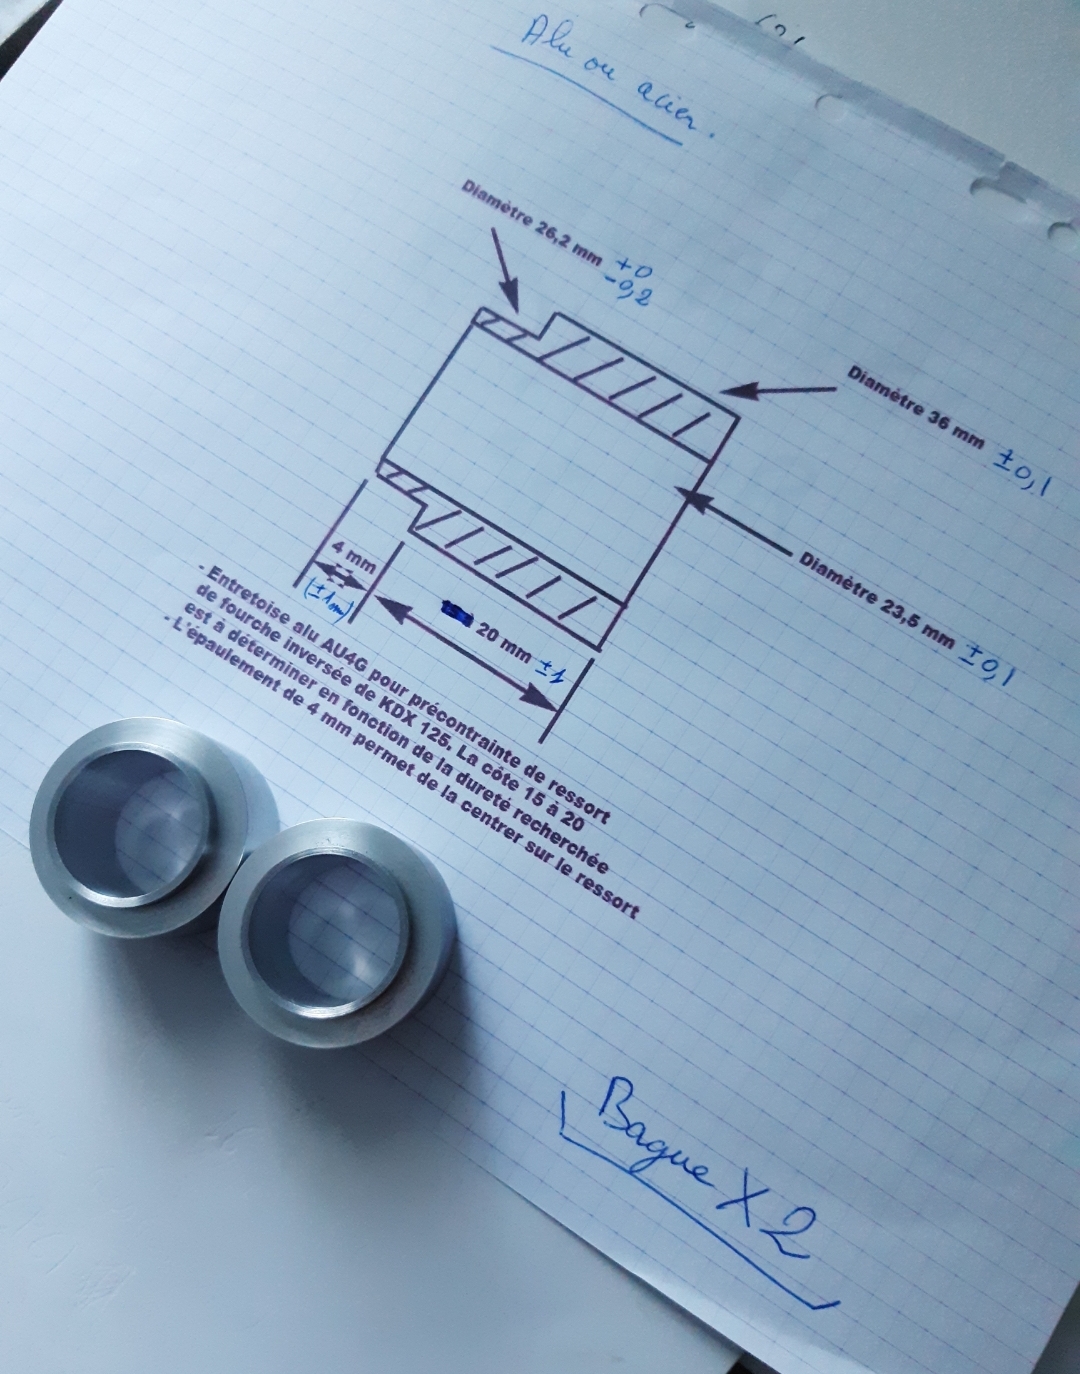 Alu ou acier.
Diamétre 26,2 mm +0 -0,2
Diamétre 36 mm ±0,1
Diamétre 23,5 mm ±0,1
4 mm
(±1mm)
20 mm ±1
- Entretoise alu AU4G pour précontrainte de ressort
de fourche inversée de KDX 125. La côte 15 à 20
est à déterminer en fonction de la dureté recherchée
- L'épaulement de 4 mm permet de la centrer sur le ressort
Bague X2